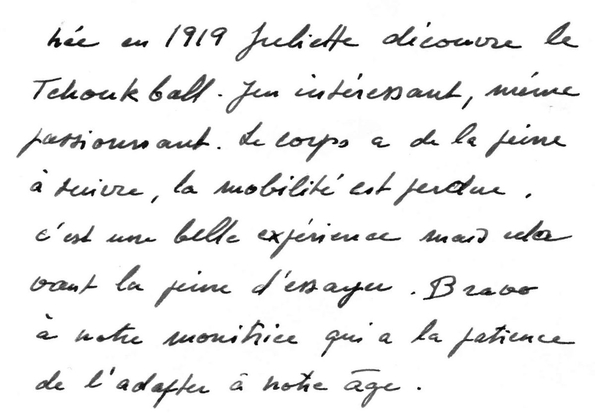 Née en 1919 Juliette découvre le
Tchouk ball. Jeu intéressant, même
passionnant. Le corps a de la peine
à suivre, la mobilité est perdue.
c'est une belle expérience mais cela
vaut la peine d'essayer. Bravo
à notre monitrice qui a la patience
de l'adapter à notre âge.